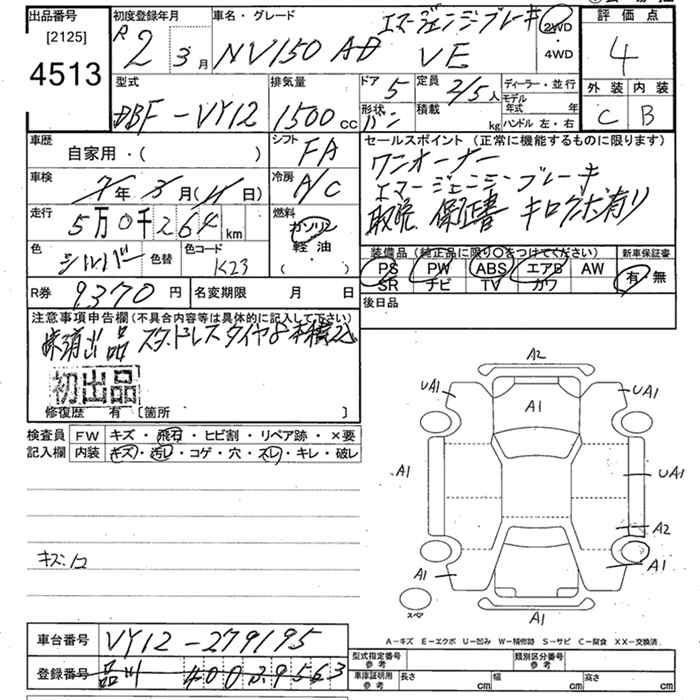 出品番号 初度登録年月 車名・グレード エマージェンシーブレーキ 評価点
[2125] R 2年 3月 NV150 AD VE 2WD・4WD 4
4513
型式 排気量 ドア 5 定員 2/5人 ディーラー・並行 外装 内装
DBF-VY12 1500cc 形状 バン 積載 kg モデル年式 年 C B
ハンドル 左・右
車歴 シフト セールスポイント(正常に機能するものに限ります)
自家用・( ) FA ワンオーナー
車検 冷房 エマージェンシーブレーキ
年3月( 日) A/C 取説 保証書 キロクボ有り
走行 燃料
5万0千264km ガソリン
軽油・( )
色 色替 色コード 装備品(純正品に限り○をつけてください) 新車保証書
シルバー K23 PS PW ABS エアB AW 有・無
SR ナビ TV カワ
R券 9370円 名変期限 月 日 後日品
注意事項申告欄(不具合内容等は具体的に記入して下さい)
抹消出品 スタッドレスタイヤ
初出品
修復歴 有 [箇所 ]
検査員 FW キズ・飛石・ヒビ割・リペア跡・×要
記入欄 内装 キズ・汚レ・コゲ・穴・スレ・キレ・破レ
キズ:12
A2
UA1 UA1
A1
A1 UA1
A2
A1 A1
スペア
A1
A-キズ E-エクボ U-凹み W-補修跡 S-サビ C-腐食 XX-交換済
車台番号 VY12-279195 型式指定番号 参考 類別区分番号 参考
登録番号 品川 400 29563 車庫証明用 参考 長さ cm 幅 cm 高さ cm